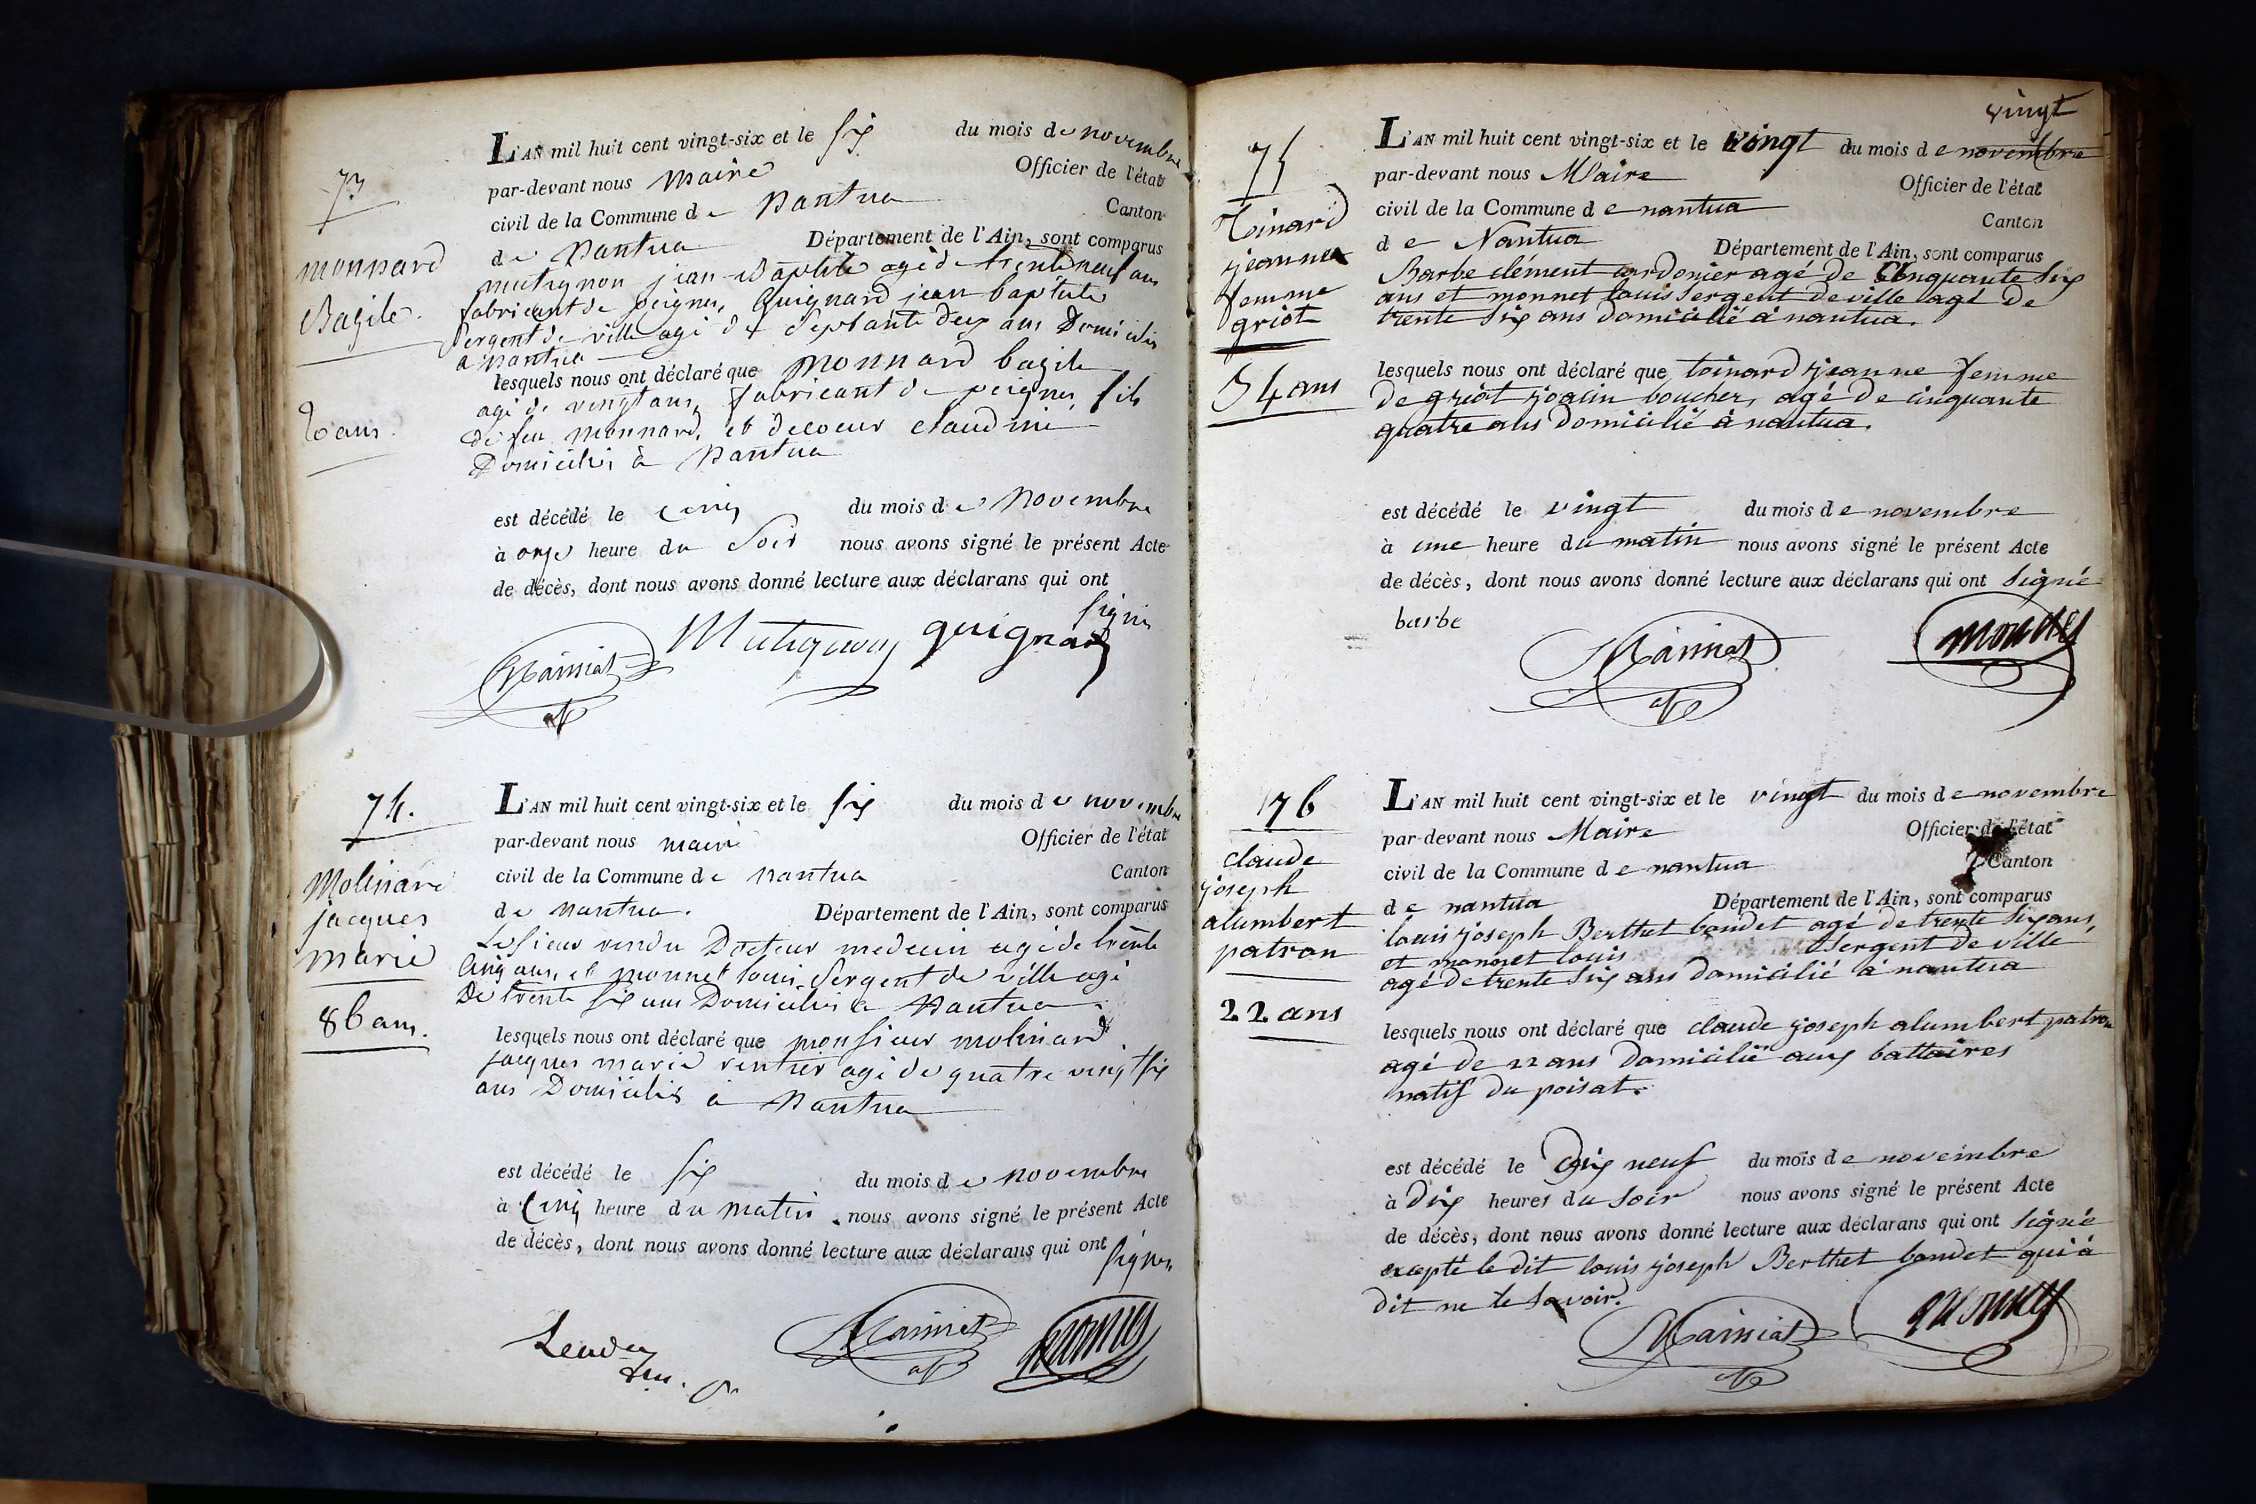 73
monnard
Bazile.
20 ans.
L'AN mil huit cent vingt-six et le six du mois de novembre
par-devant nous maire Officier de l'état
civil de la Commune de Nantua Canton
de Nantua Département de l'Ain, sont comparus
mutignon jean-Baptiste agé de trente neuf ans
fabricant de peignes, Guignard jean baptiste
sergent de ville agé de septante deux ans Domiciliés
a nantua
lesquels nous ont déclaré que Monnard bazile
agé de vingt ans, fabricant de peignes, fils
de feu Monnard, et decoeur claudine
Domiciliés à Nantua
est décédé le cinq du mois de Novembre
à onze heure du Soir nous avons signé le présent Acte
de décès, dont nous avons donné lecture aux déclarans qui ont
signé
Mutignon guignard
74.
Molinard
jacques
marie
86 ans.
L'AN mil huit cent vingt-six et le six du mois de novembre
par-devant nous maire Officier de l'état
civil de la Commune de Nantua Canton
de Nantua. Département de l'Ain, sont comparus
Le sieur vendu Docteur medecin agé de trente
cinq ans, et monnet louis Sergent de ville agé
De trente six ans Domiciliés a Nantua
lesquels nous ont déclaré que monsieur molinard
jacques marie rentier agé de quatre vingt six
ans Domiciliés à Nantua
est décédé le six du mois de novembre
à Cinq heure du matin nous avons signé le présent Acte
de décès, dont nous avons donné lecture aux déclarans qui ont
signés
monnet
vingt
75
Toinard
jeanne
femme
griot
54 ans
L'AN mil huit cent vingt-six et le vingt du mois de novembre
par-devant nous Maire Officier de l'état
civil de la Commune de nantua Canton
de Nantua Département de l'Ain, sont comparus
Barbe clément cordonier agé de Cinquante six
ans et monnet louis sergent de ville agé de
trente six ans domicilié à nantua.
lesquels nous ont déclaré que toinard jeanne femme
de griot joacin boucher, agé de cinquante
quatre ans domicilié à nantua.
est décédé le vingt du mois de novembre
à une heure du matin nous avons signé le présent Acte
de décès, dont nous avons donné lecture aux déclarans qui ont signé
barbe
monnet
76
claude
joseph
alumbert
patron
22 ans
L'AN mil huit cent vingt-six et le vingt du mois de novembre
par-devant nous Maire Officier de l'état
civil de la Commune de nantua Canton
de nantua Département de l'Ain, sont comparus
louis joseph Berthet bondet agé de trente six ans,
et monnet louis sergent de ville
agé de trente six ans domicilié à nantua
lesquels nous ont déclaré que claude joseph alumbert patron
agé de 22 ans domicilié aux battoires
natif du poisat.
est décédé le Dix neuf du mois de novembre
à dix heures du soir nous avons signé le présent Acte
de décès, dont nous avons donné lecture aux déclarans qui ont signé
excepté le dit louis joseph Berthet bondet qui à
dit ne le savoir.
monnet